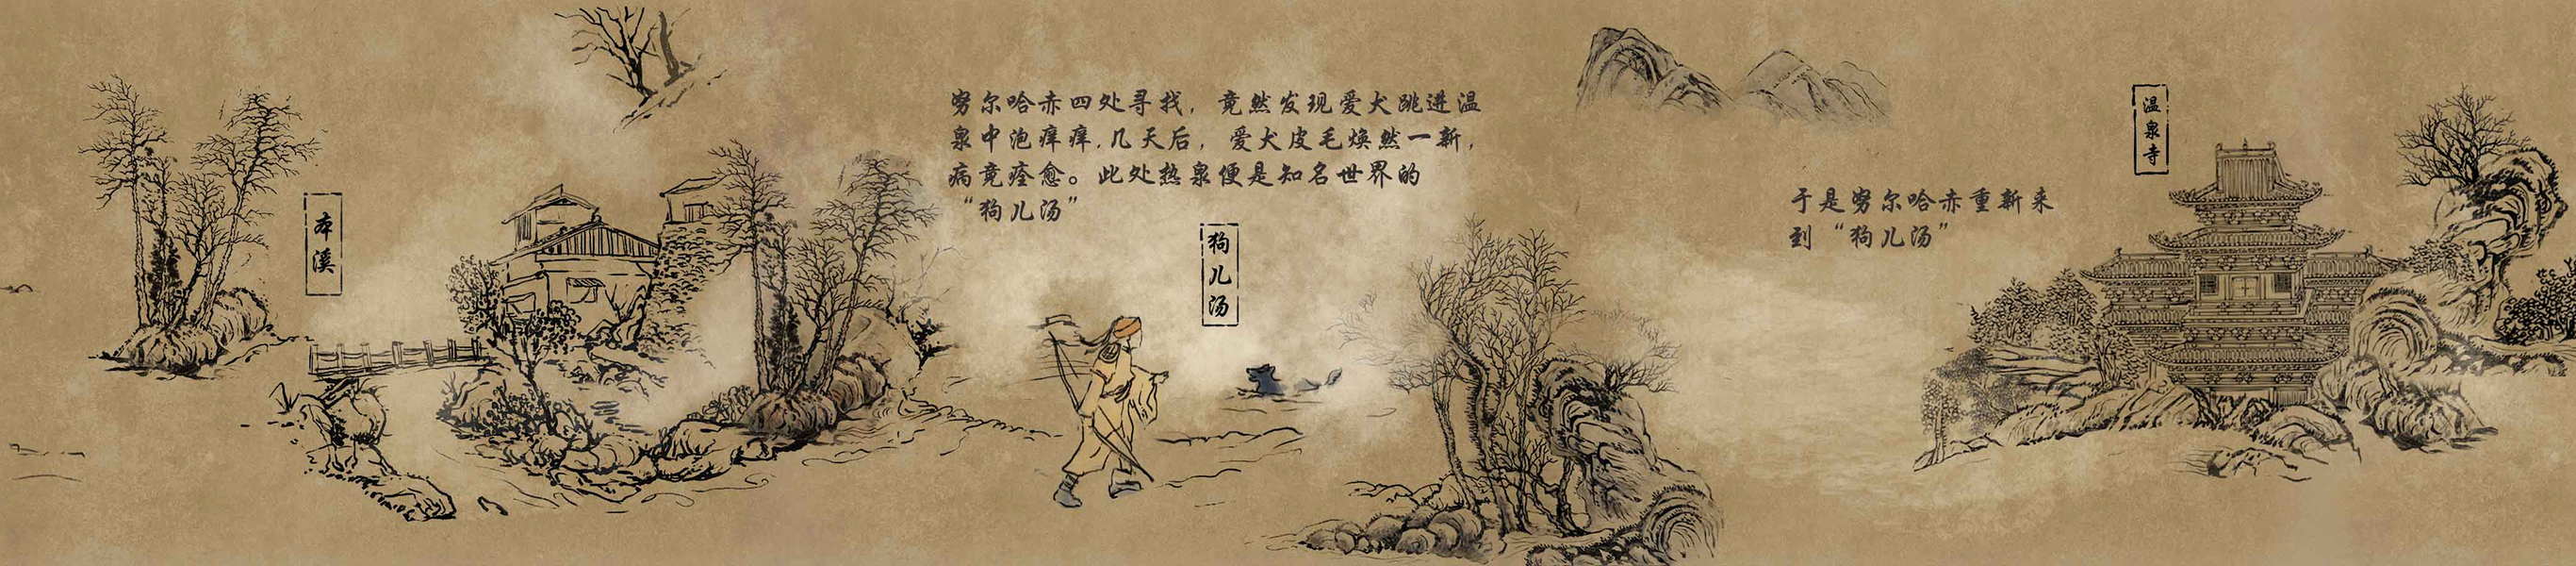 本溪
努尔哈赤四处寻找，竟然发现爱犬跳进温
泉中泡痒痒.几天后，爱犬皮毛焕然一新，
病竟痊愈。此处热泉便是知名世界的
“狗儿汤”
狗儿汤
于是努尔哈赤重新来
到“狗儿汤”
温泉寺